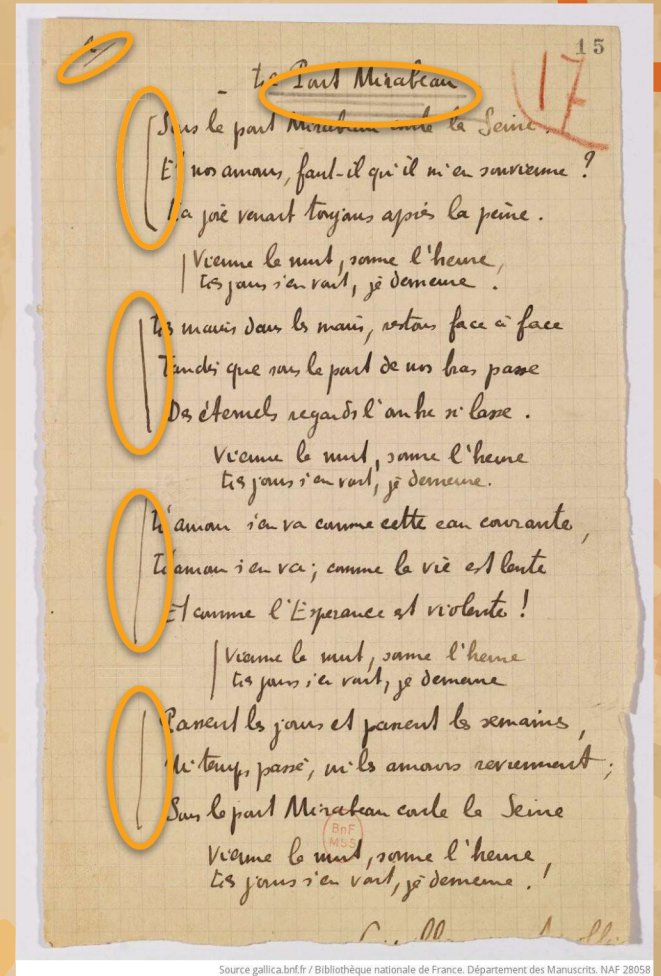 15
17
Le Pont Mirabeau
Sous le pont Mirabeau coule la Seine.
Et nos amours, faut-il qu'il m'en souvienne ?
La joie venait toujours après la peine.
Vienne la nuit, sonne l'heure,
Les jours s'en vont, je demeure.
Les mains dans les mains, restons face à face
Tandis que sous le pont de nos bras passe
Des éternels regards l'onde si lasse.
Vienne la nuit, sonne l'heure
Les jours s'en vont, je demeure.
L'amour s'en va comme cette eau courante,
L'amour s'en va ; comme la vie est lente
Et comme l'Espérance est violente !
Vienne la nuit, sonne l'heure
Les jours s'en vont, je demeure
Passent les jours et passent les semaines,
Ni temps passé, ni les amours reviennent ;
Sous le pont Mirabeau coule la Seine
BnF
MSS
Vienne la nuit, sonne l'heure,
Les jours s'en vont, je demeure.!
Source gallica.bnf.fr / Bibliothèque nationale de France. Département des Manuscrits. NAF 28058